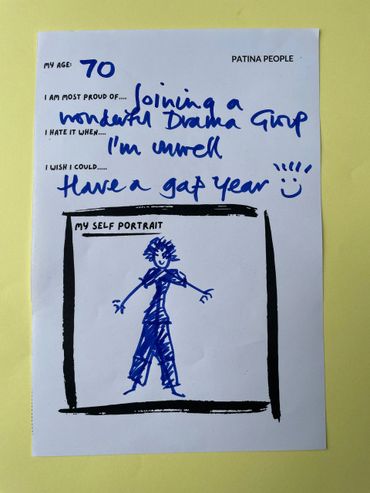 PATINA PEOPLE
MY AGE: 70
I AM MOST PROUD OF.... Joining a
wonderful Drama Group
I HATE IT WHEN....
I'm unwell
I WISH I COULD.....
Have a gap year
MY SELF PORTRAIT